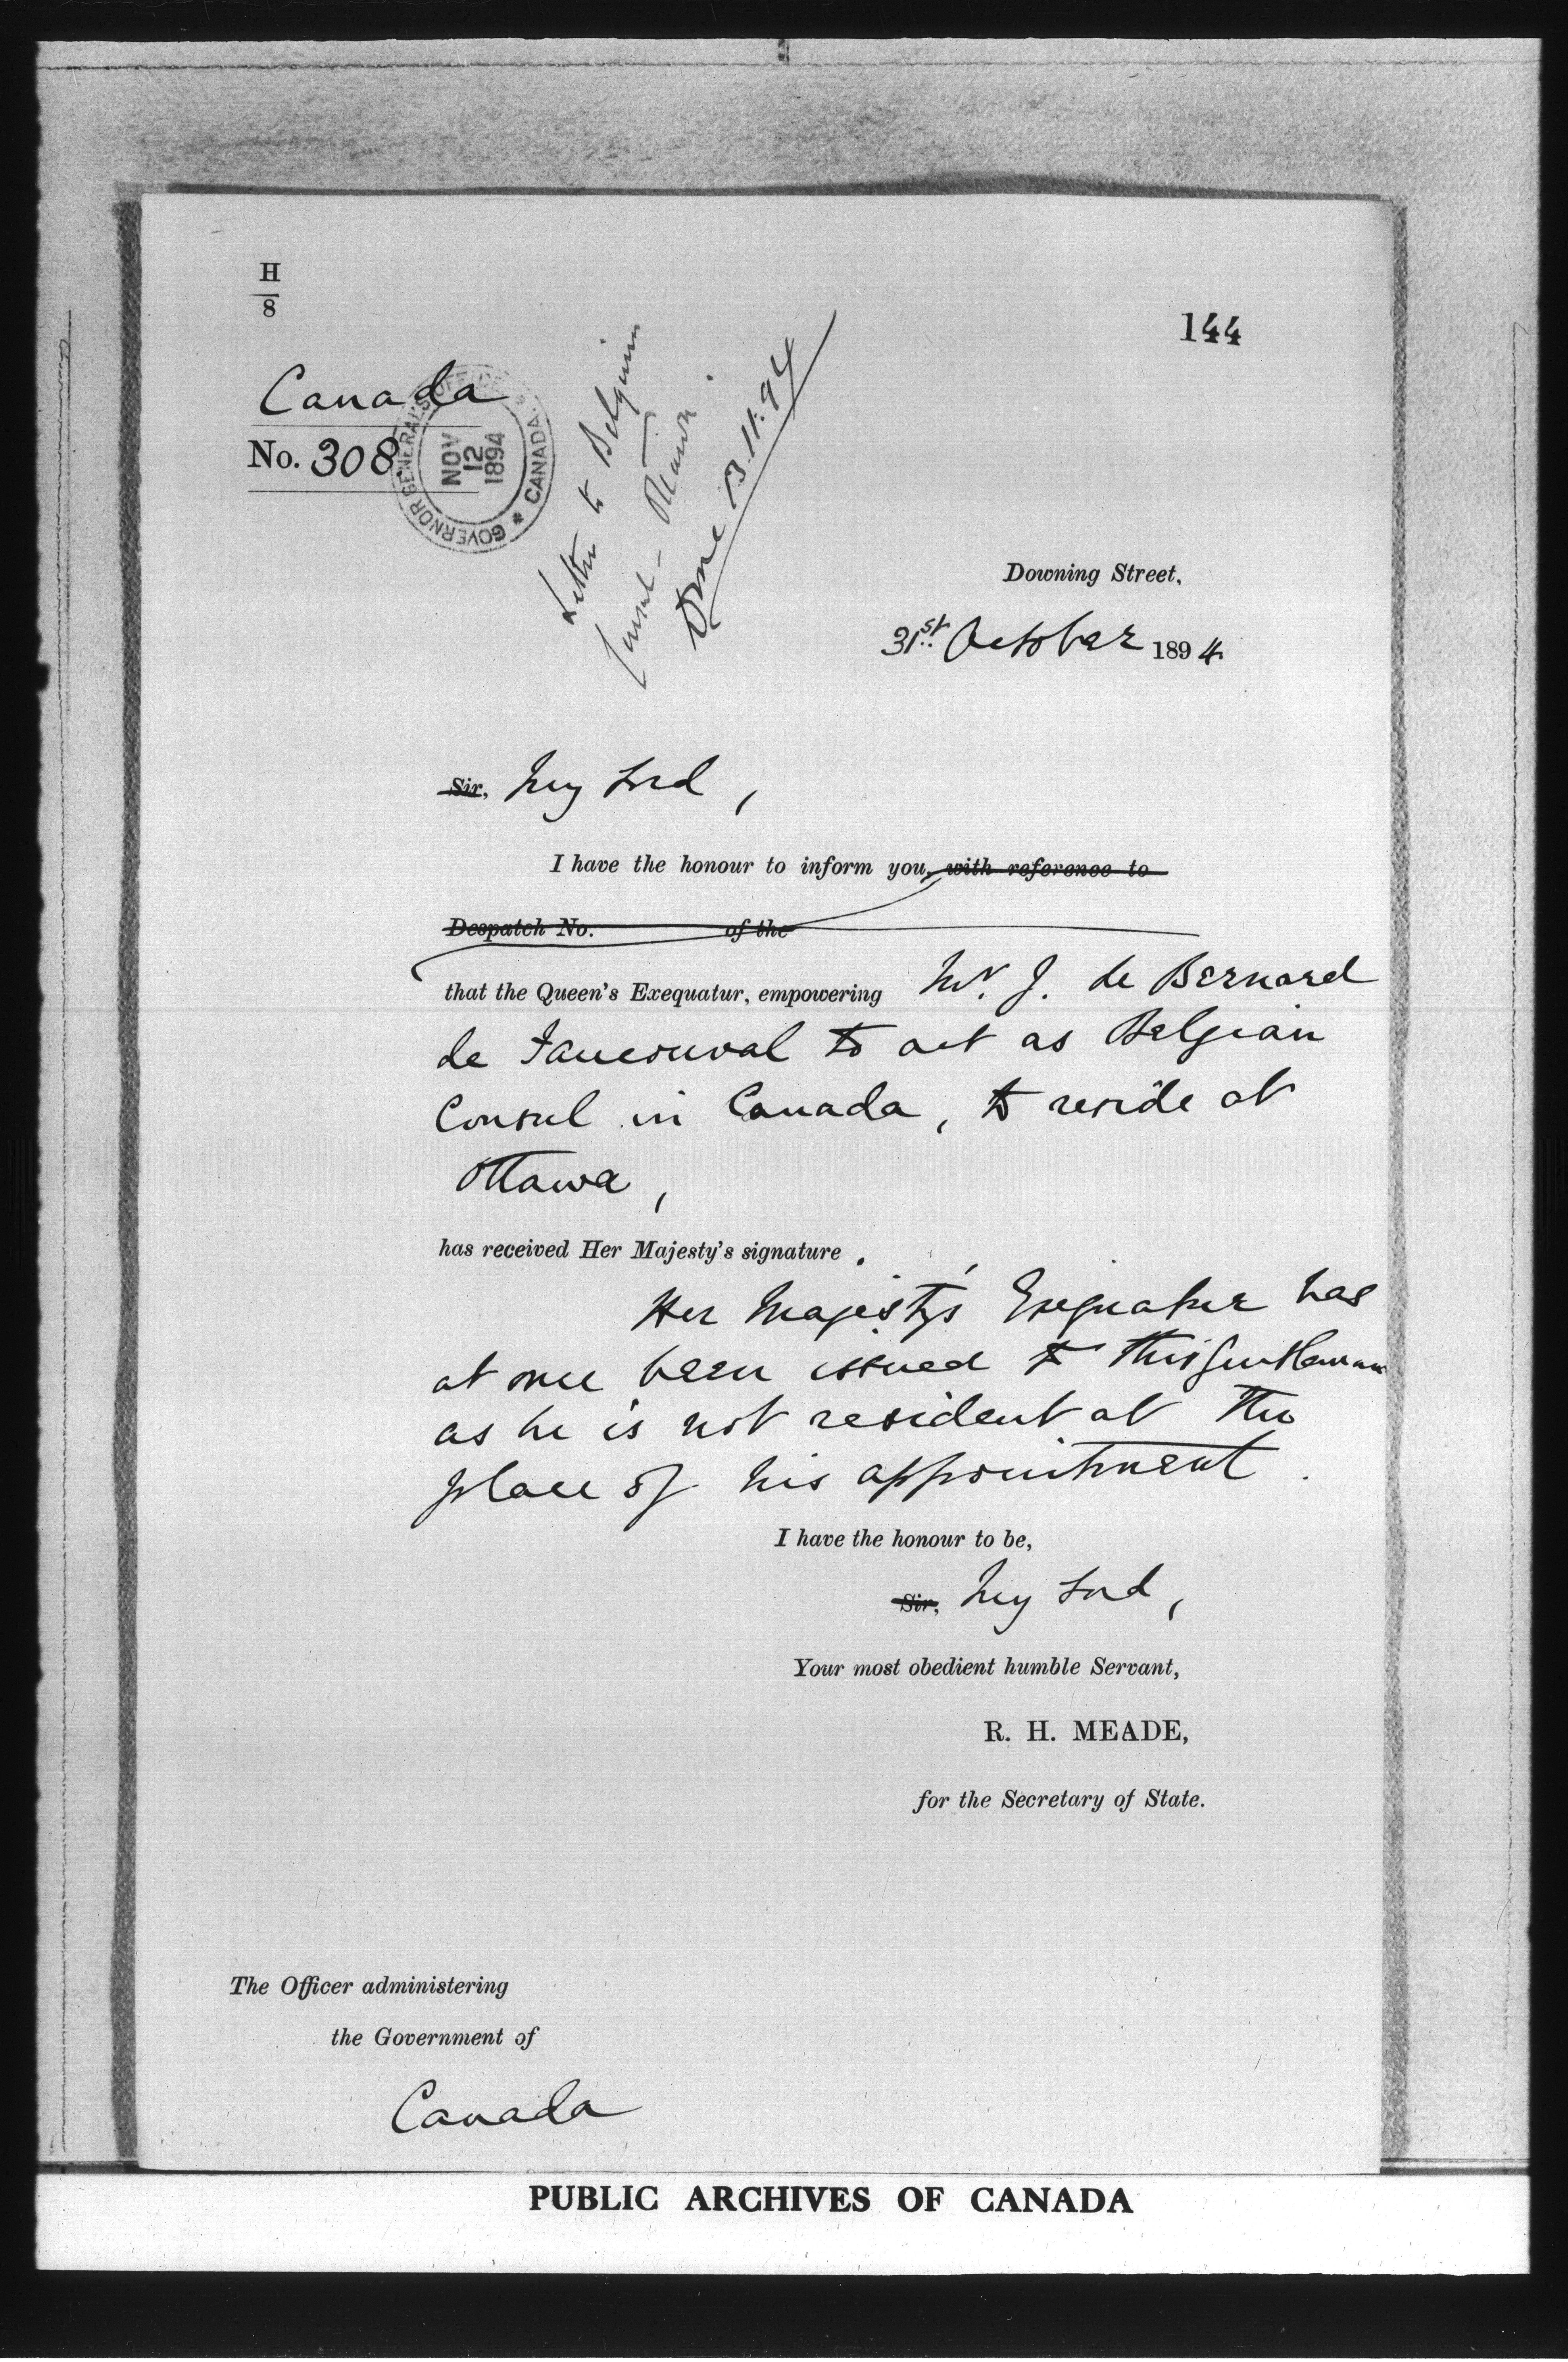 H
8
144
Canada
No. 308
GOVERNOR GENERAL'S OFFICE * CANADA *
NOV
12
1894
Letter to Belgium
Consul - Ottawa.
Done 13.11.94
Downing Street,
31st October 1894.
Sir, My Lord,
I have the honour to inform you, with reference to
Despatch No. of the
that the Queen's Exequatur, empowering Mr. J. de Bernard
de Fauconval to act as Belgian
Consul in Canada, to reside at
Ottawa,
has received Her Majesty's signature.
Her Majesty's Exequatur has
at once been issued to this gentleman
as he is not resident at the
place of his appointment.
I have the honour to be,
Sir, My Lord,
Your most obedient humble Servant,
R. H. MEADE,
for the Secretary of State.
The Officer administering
the Government of
Canada
PUBLIC ARCHIVES OF CANADA